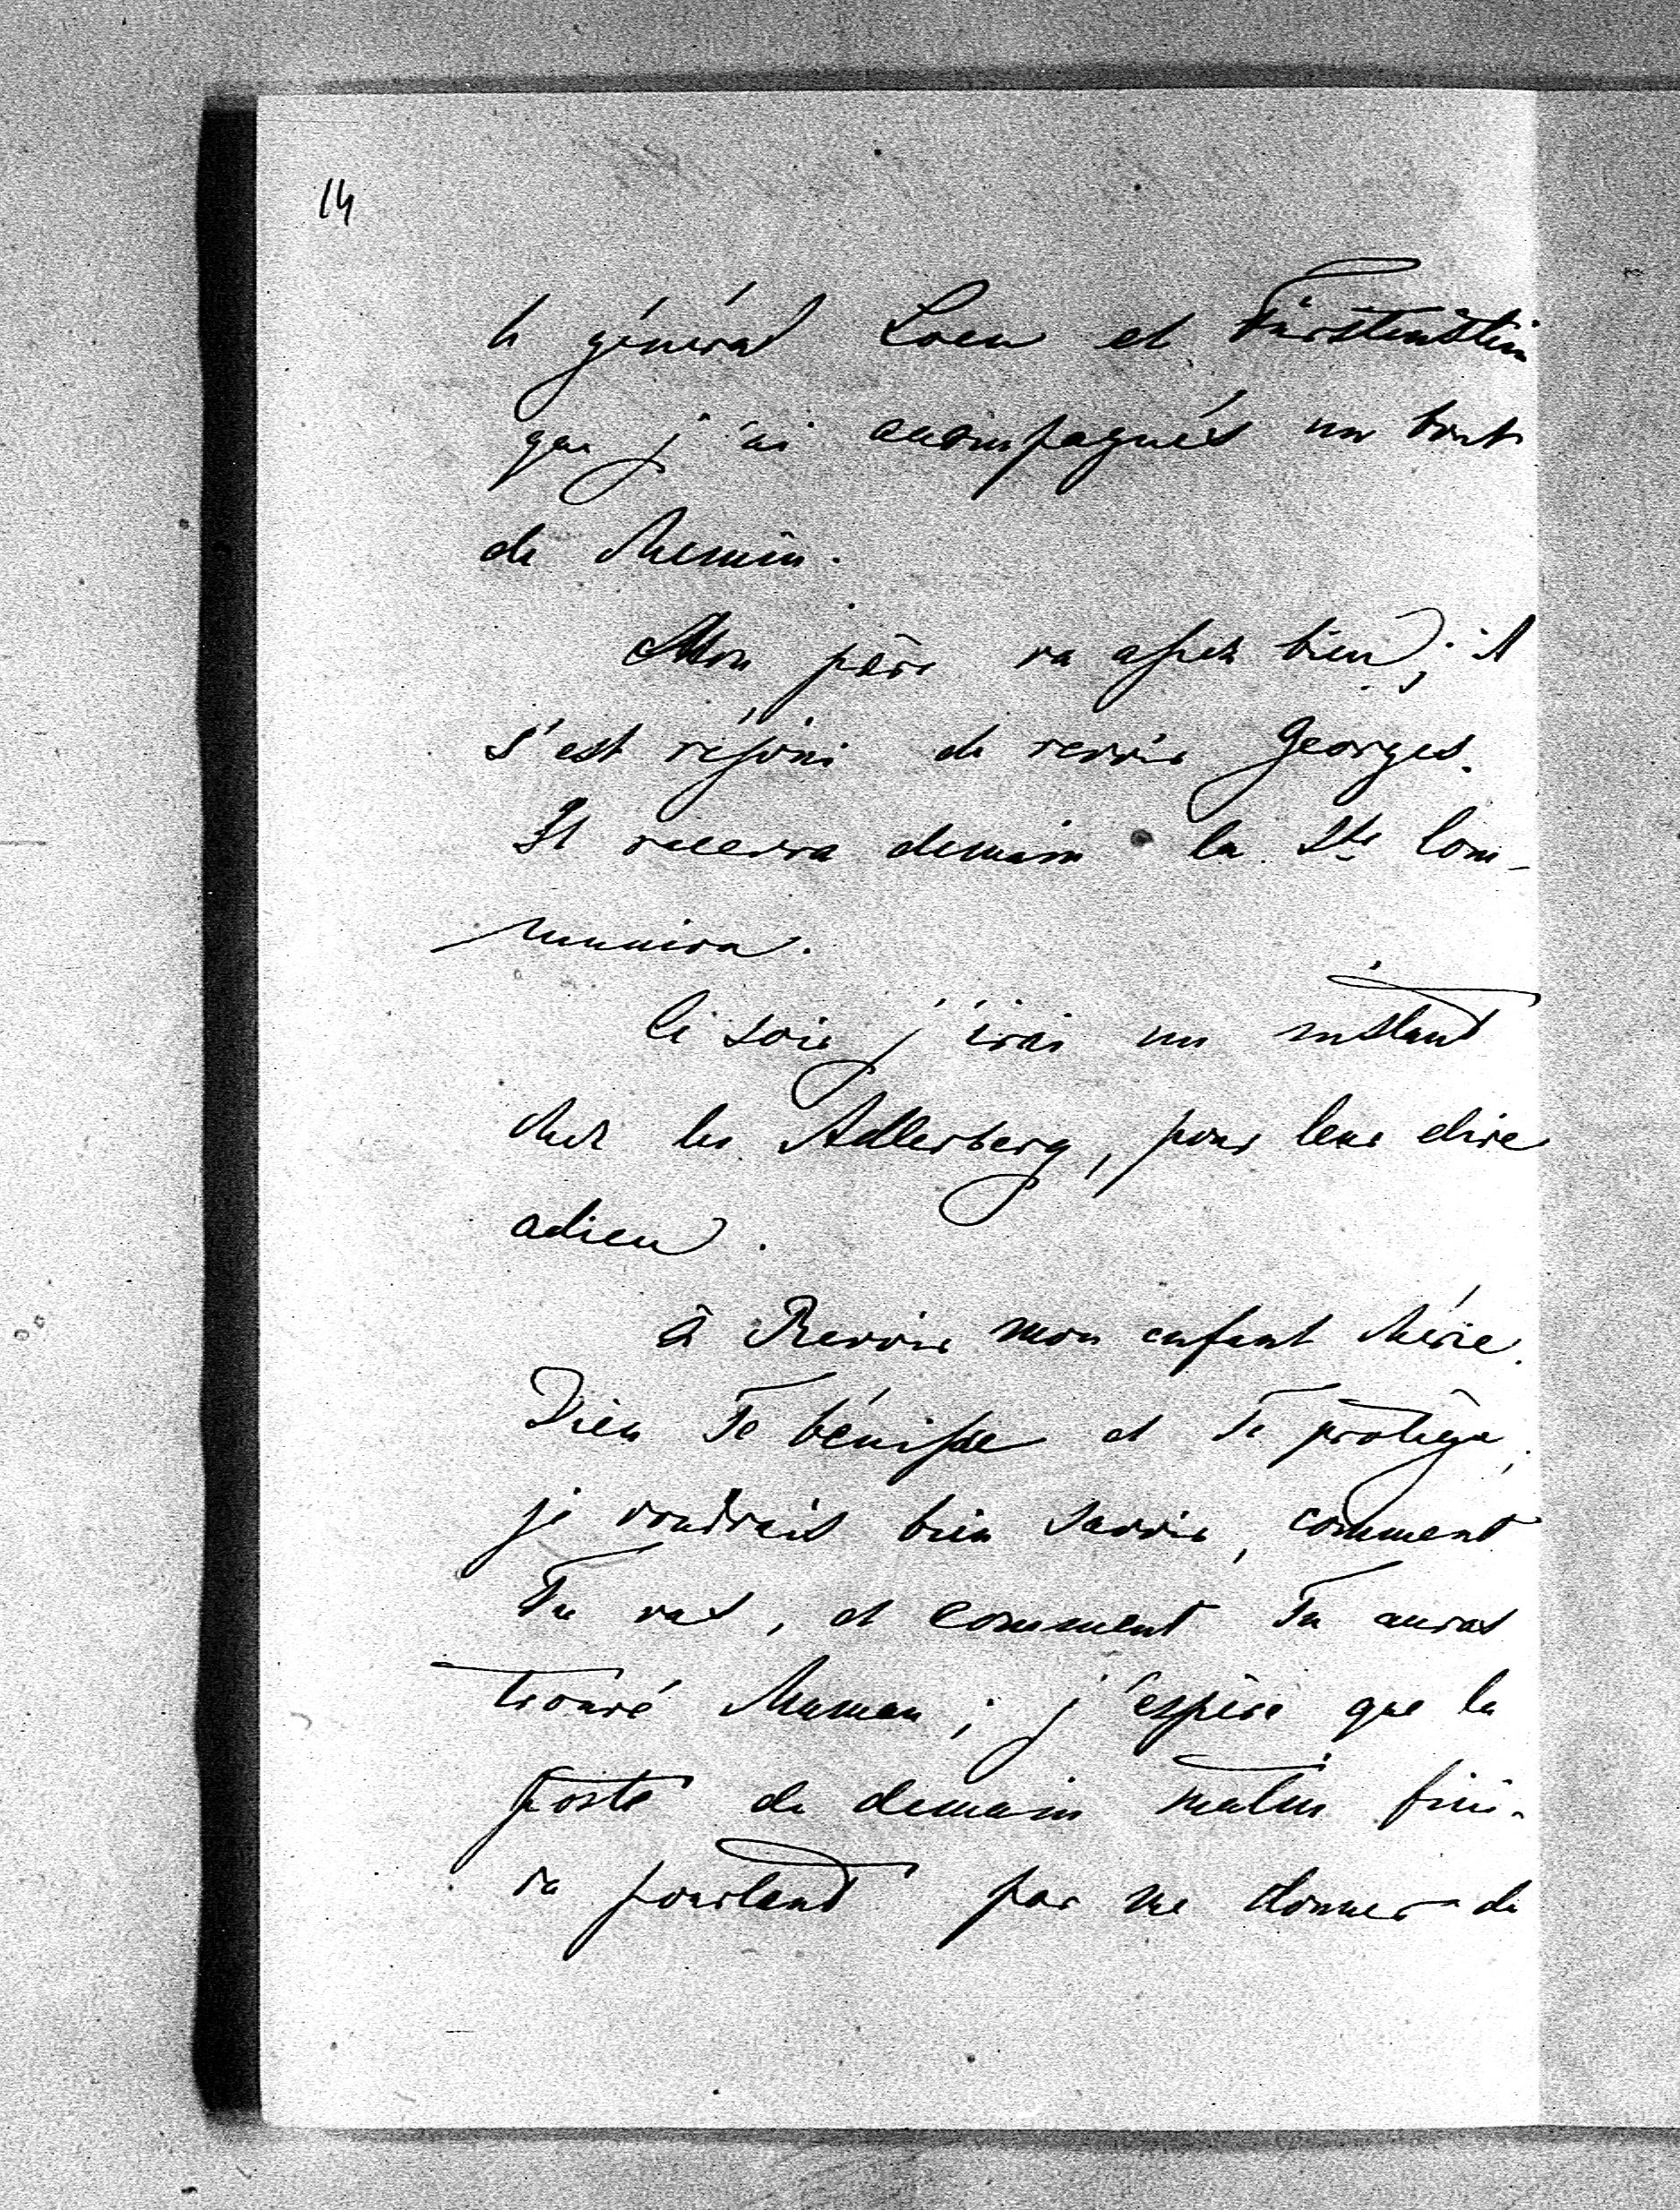 14
le général Loen et Fürstenstein
que j'ai accompagnés un bout
de chemin.
Mon père va assez bien; il
s'est réjoui de revoir Georges.
Il recevra demain la Ste Com-
munion.
Ce soir j'irai un instant
chez les Adlerberg, pour leur dire
adieu.
à Revoir mon enfant chérie.
Dieu Te bénisse et Te protège,
je voudrais bien savoir, comment
Tu vas, et comment Tu auras
trouvé Maman; j'espère que la
poste de demain matin fini-
ra pourtant par me donner de